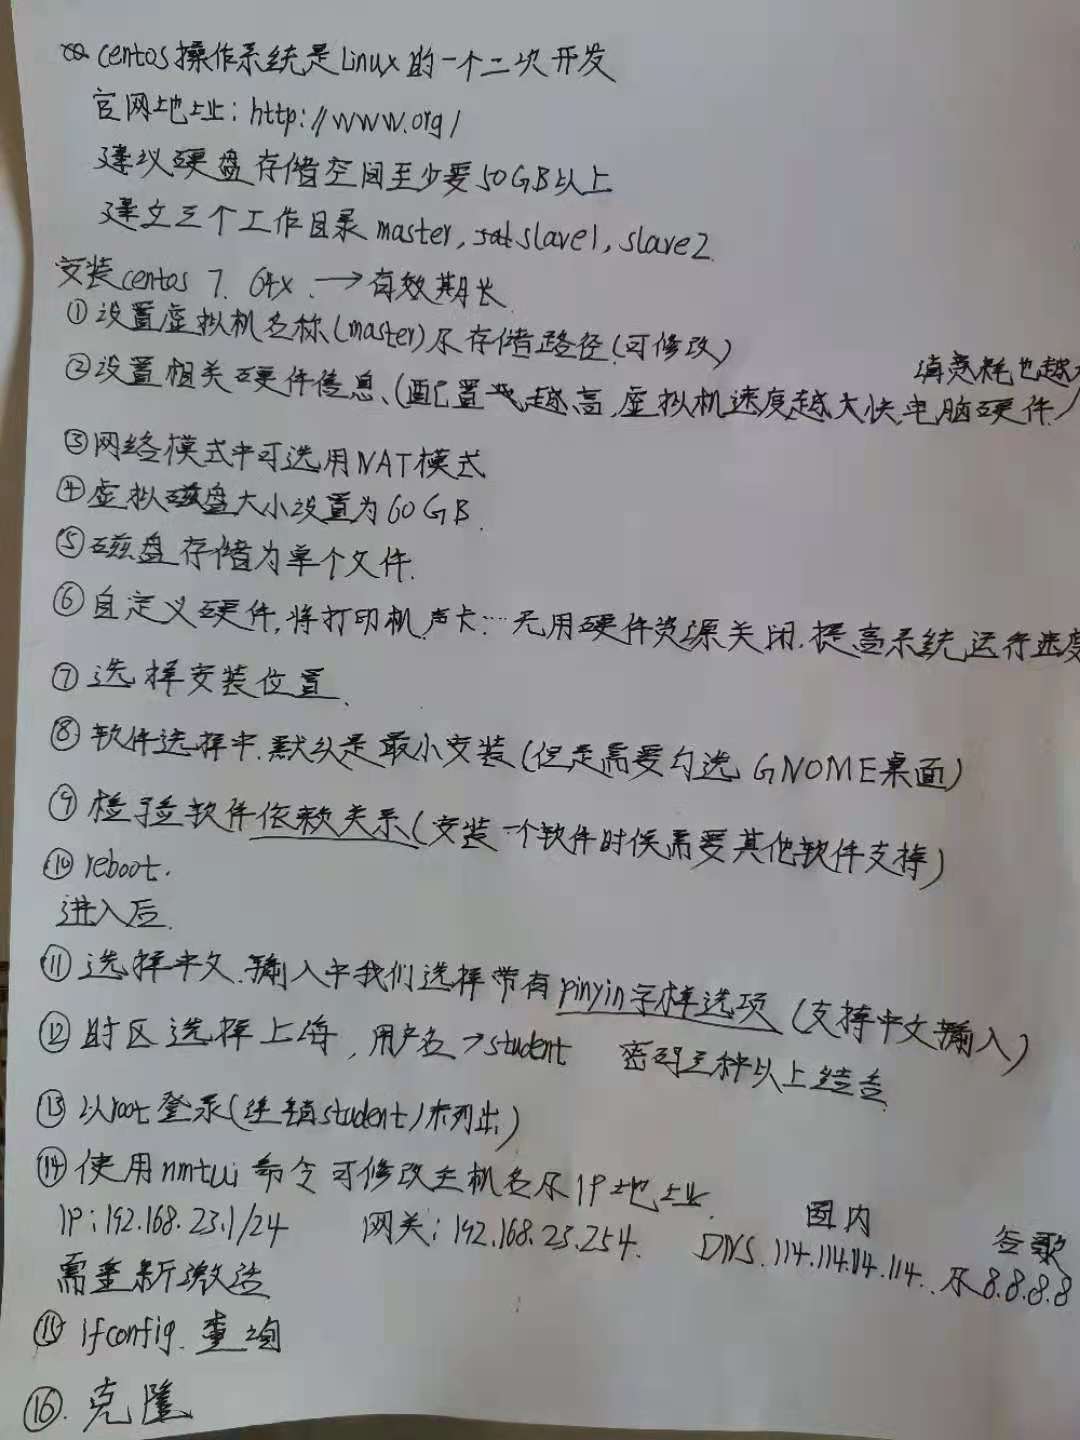 centos操作系统是Linux的一个二次开发
官网地址: http://www.org/
建议硬盘存储空间至少要50GB以上
建立三个工作目录 master, slave1, slave2
安装centos 7. 64x. → 有效期长
①设置虚拟机名称(master)及存储路径.(可修改)
消耗也越
②设置相关硬件信息、(配置越高,虚拟机速度越快,电脑硬件)
③网络模式中可选用NAT模式
④虚拟磁盘大小设置为60GB.
⑤磁盘存储为单个文件.
⑥自定义硬件,将打印机,声卡…无用硬件资源关闭.提高系统运行速度
⑦选择安装位置.
⑧软件选择中.默认是最小安装(但是需要勾选GNOME桌面)
⑨检验软件依赖关系(安装一个软件时候需要其他软件支持)
⑩reboot.
进入后.
⑪选择中文.输入中我们选择带有pinyin字样选项(支持中文输入)
⑫时区选择上海,用户名→student 密码三种以上结合
⑬以root登录(注销student/未列出)
⑭使用nmtui命令可修改主机名及IP地址.
国内 谷歌
IP:192.168.23.1/24 网关:192.168.23.254. DNS.114.114.114.114.及8.8.8.8
需重新激活
⑮ifconfig.查询
⑯.克隆